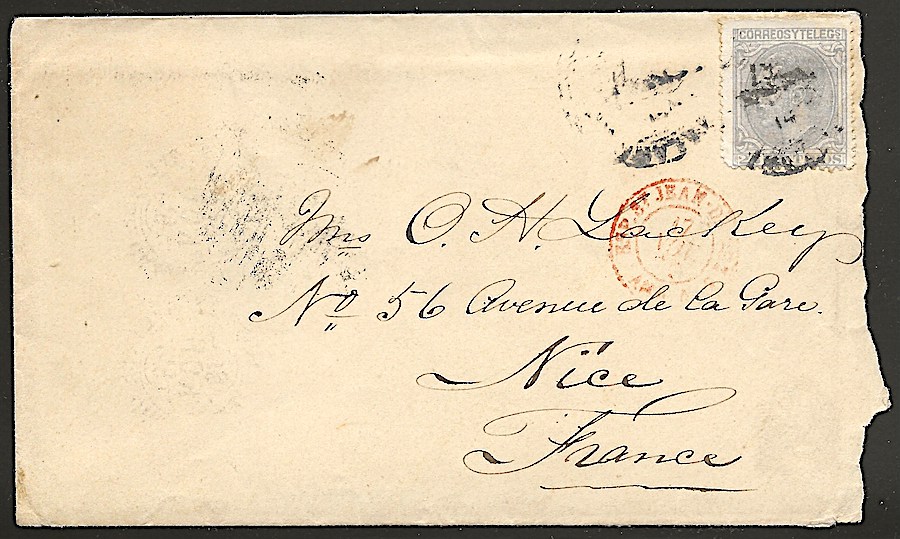 CORREOS Y TELEGS
Mrs O. H. Lackey
No 56 Avenue de la Gare.
Nice
France